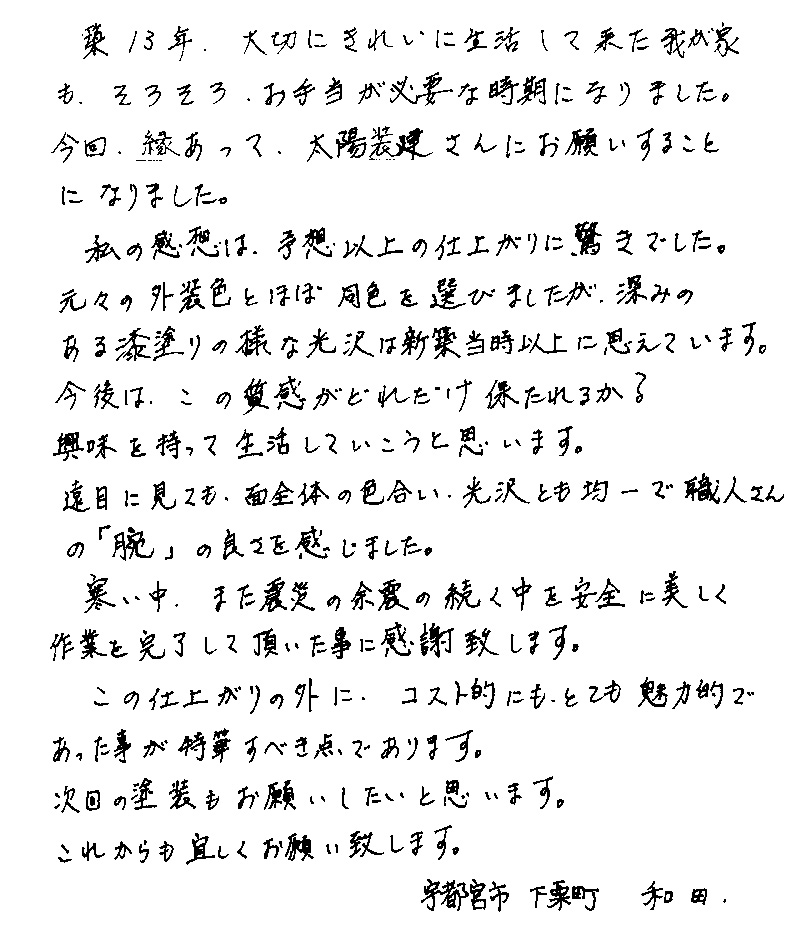 築13年、大切にきれいに生活して来た我が家
も、そろそろ、お手当が必要な時期になりました。
今回、縁あって、太陽装建さんにお願いすること
になりました。
私の感想は、予想以上の仕上がりに驚きでした。
元々の外装色とほぼ同色を選びましたが、深みの
ある漆塗りの様な光沢は新築当時以上に思えています。
今後は、この質感がどれだけ保たれるか?
興味を持って生活していこうと思います。
遠目に見ても、面全体の色合い、光沢とも均一で職人さん
の「腕」の良さを感じました。
寒い中、また震災の余震の続く中を安全に美しく
作業を完了して頂いた事に感謝致します。
この仕上がりの外に、コスト的にも、とても魅力的で
あった事が特筆すべき点であります。
次回の塗装もお願いしたいと思います。
これからも宜しくお願い致します。
宇都宮市 下栗町 和田.